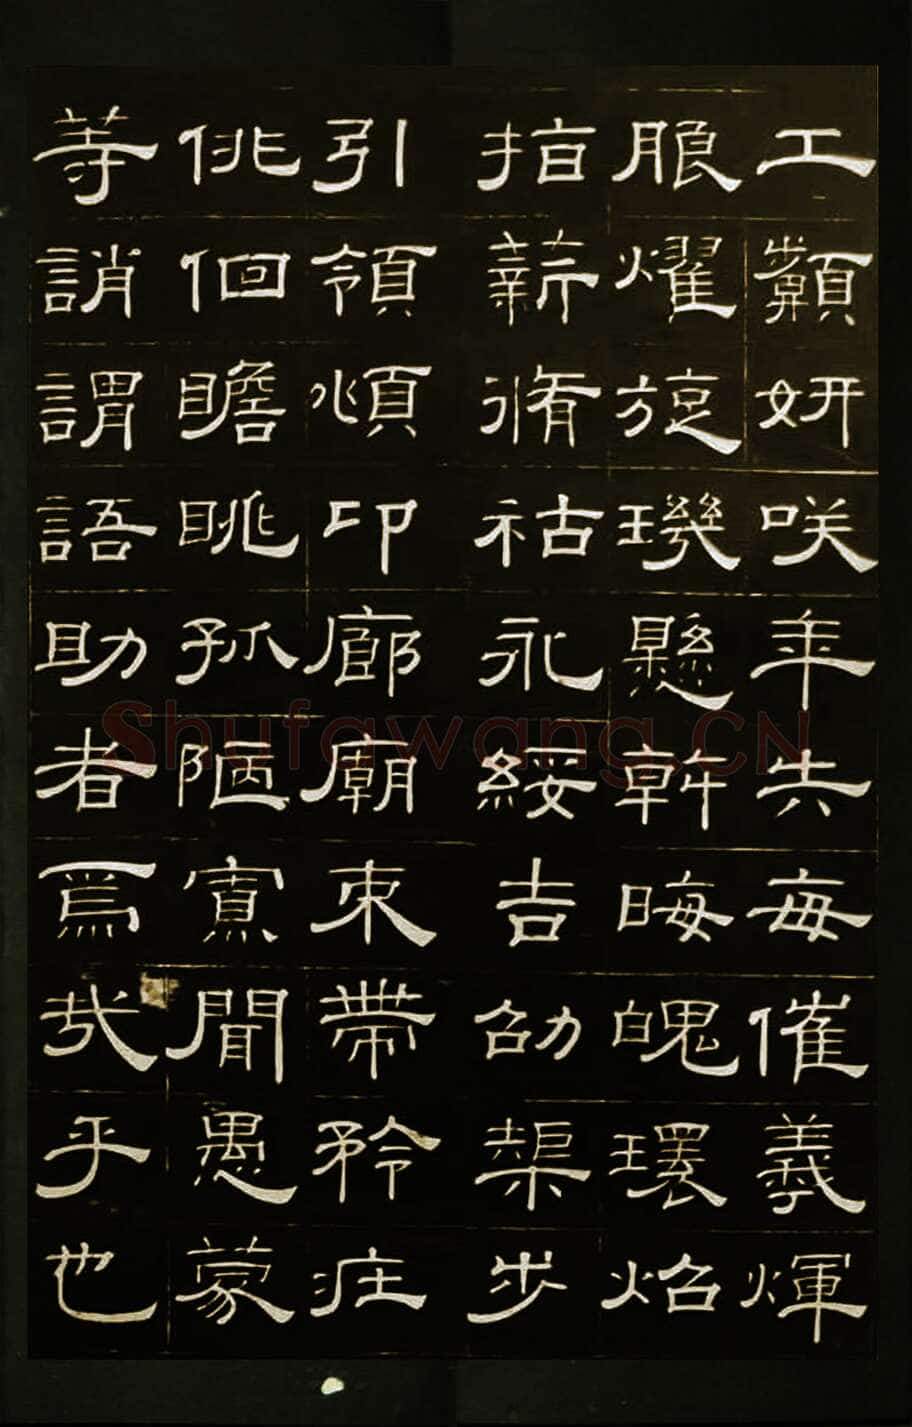 工顰妍咲年矢每催羲暉
朗耀旋璣懸斡晦魄環炤
指薪脩祜永綏吉劭榘步
引領頫卬廊廟束帶矜莊
俳佪瞻眺孤陋寡聞愚蒙
等誚謂語助者焉哉乎也
Shufawang.CN